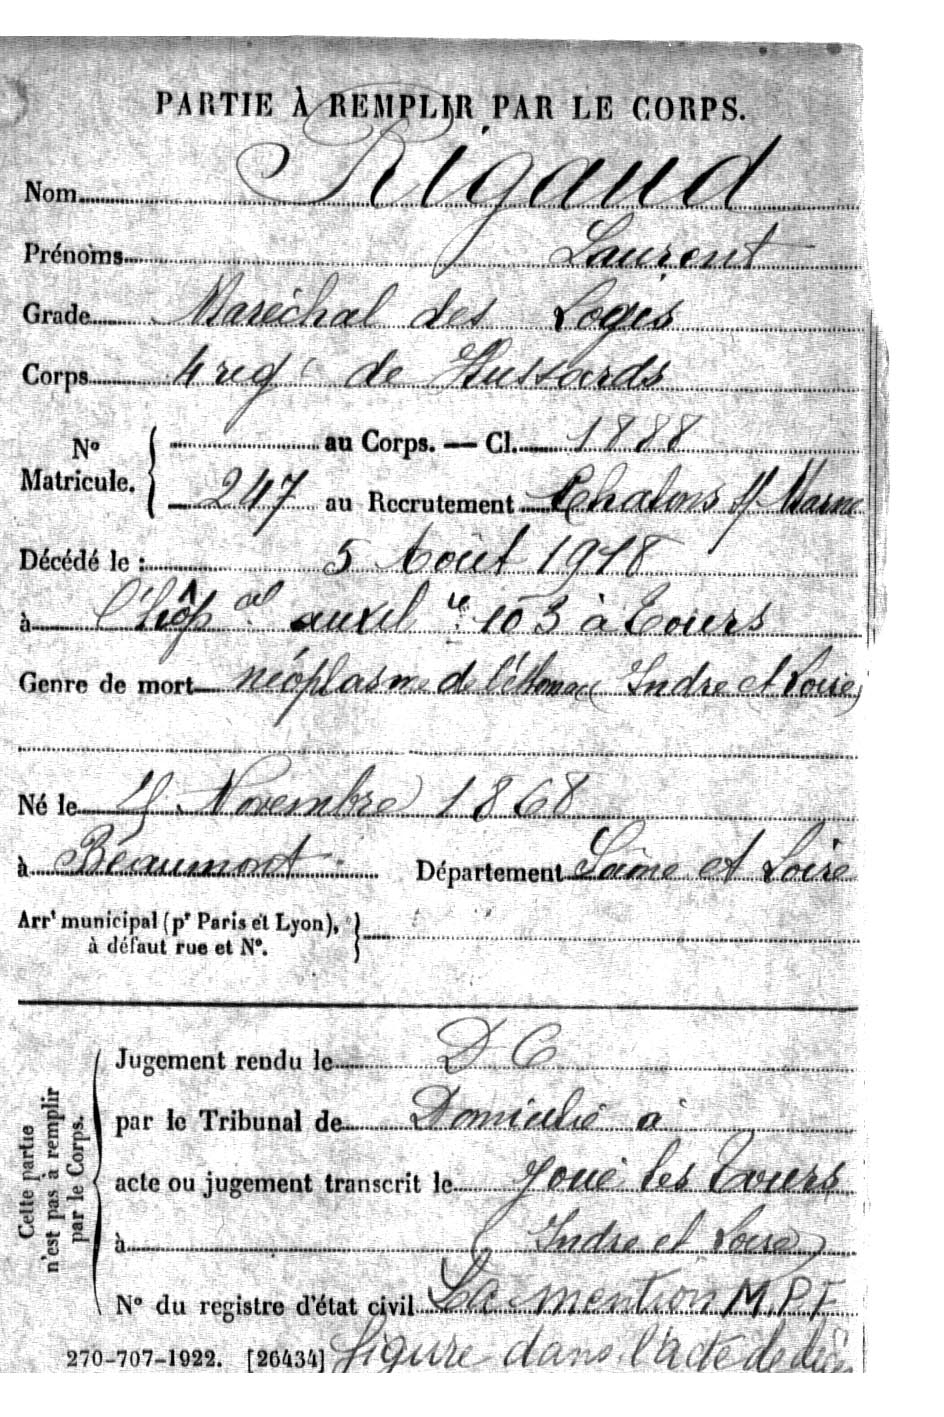 PARTIE À REMPLIR PAR LE CORPS.
Nom Rigaud
Prénoms Laurent
Grade Maréchal des Logis
Corps 4 regt de Hussards
No Matricule. { au Corps. — Cl. 1888
247 au Recrutement Chalons s/ Marne
Décédé le : 5 Août 1918
à l'hôp al auxil re 103 à Tours
Genre de mort néoplasme de l'éstomac (Indre et Loire)
Né le Novembre 1868
à Beaumont Département Saône et Loire
Arrt municipal (pr Paris et Lyon), }
à défaut rue et No.
Cette partie
n'est pas à remplir
par le Corps.
Jugement rendu le DC
par le Tribunal de Domicilié à
acte ou jugement transcrit le Joué les Tours
à (Indre et Loire)
No du registre d'état civil La mention M.P.F
270-707-1922. [26434] figure dans l'acte de